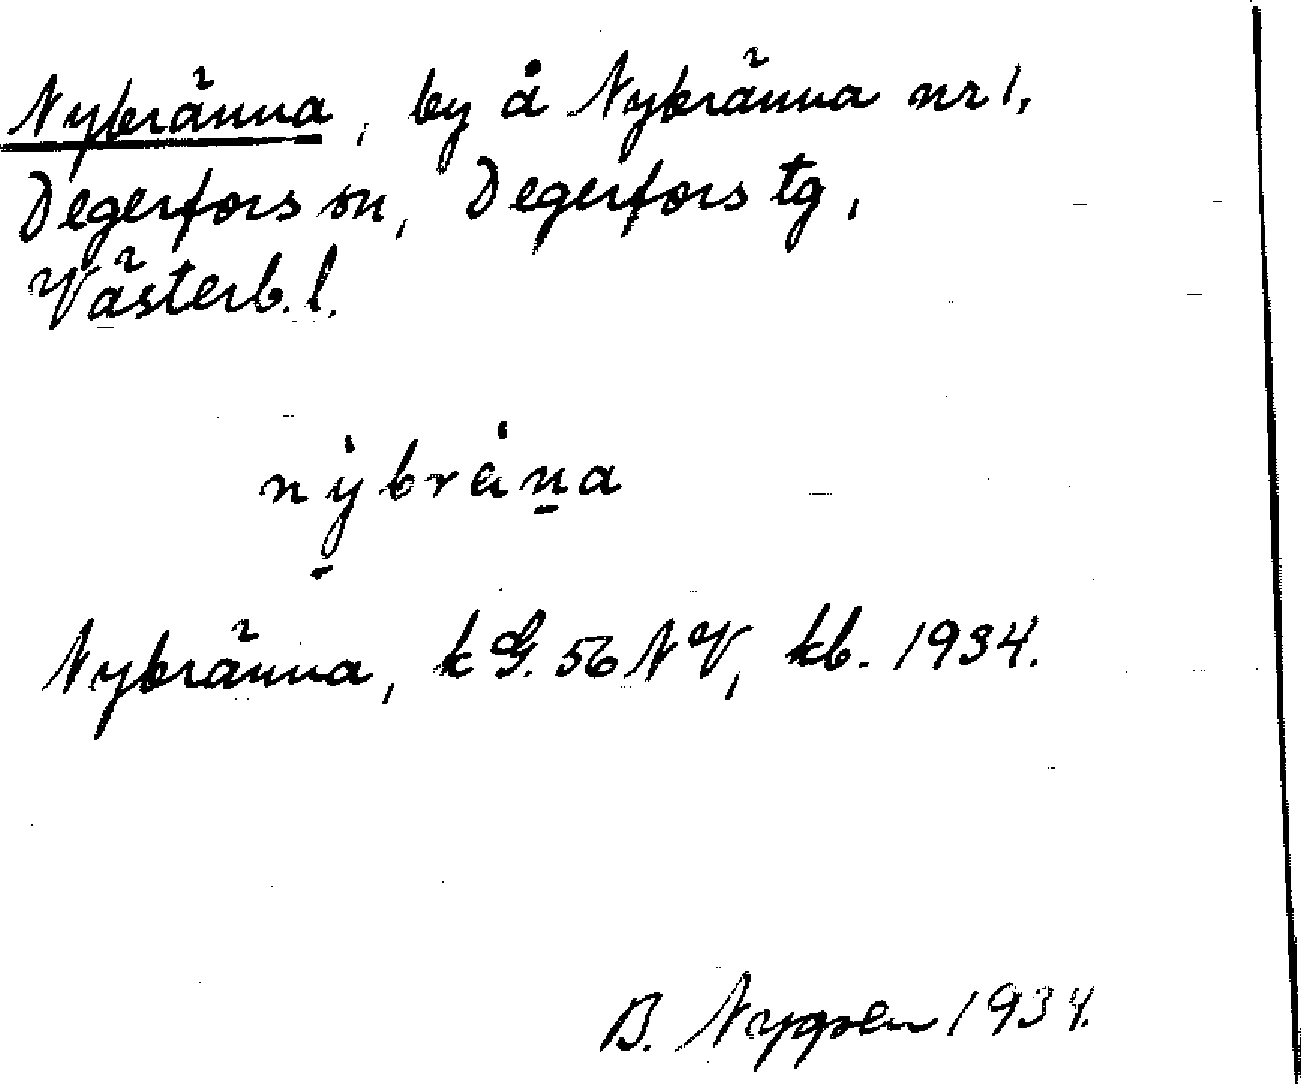 Nybränna, by å Nybränna nr 1,
Degerfors sn, Degerfors tg,
Västerb. l.
nybräna
Nybränna, k G. 56 NV, kb. 1934.
B. Nygren 1934.